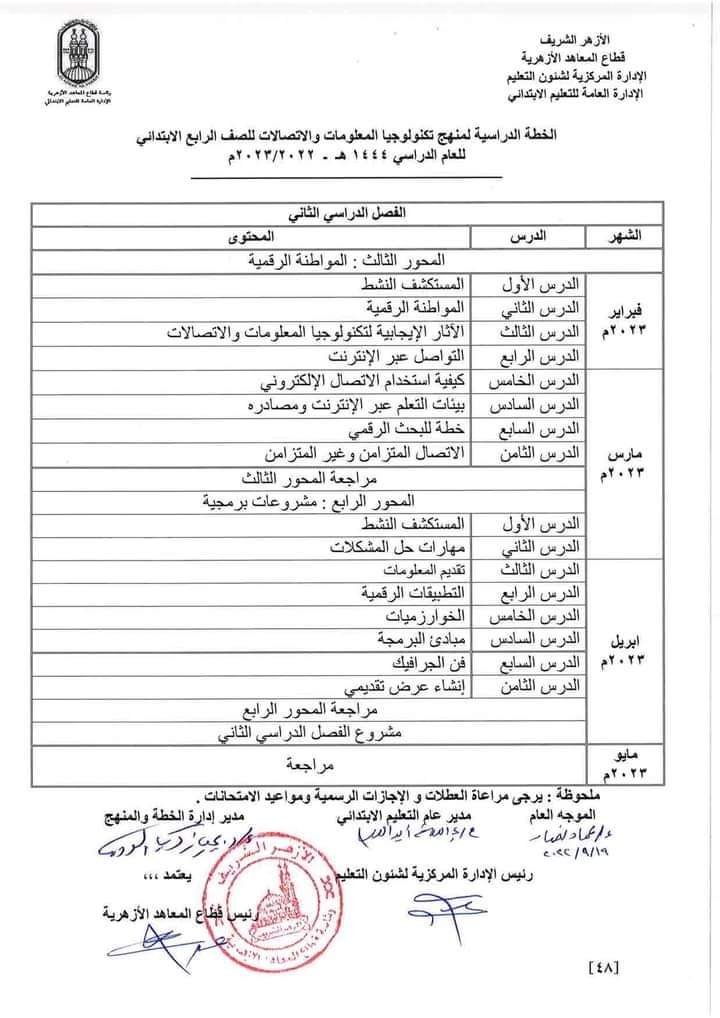 الأزهر الشريف
قطاع المعاهد الأزهرية
الإدارة المركزية لشئون التعليم
الإدارة العامة للتعليم الابتدائي
رئاسة قطاع المعاهد الأزهرية
الإدارة العامة للتعليم الابتدائي
الخطة الدراسية لمنهج تكنولوجيا المعلومات والاتصالات للصف الرابع الابتدائي
للعام الدراسي ١٤٤٤ هـ - ٢٠٢٣/٢٠٢٢م
الفصل الدراسي الثاني
الشهر الدرس المحتوى
المحور الثالث : المواطنة الرقمية
فبراير ٢٠٢٣م
الدرس الأول المستكشف النشط
الدرس الثاني المواطنة الرقمية
الدرس الثالث الآثار الإيجابية لتكنولوجيا المعلومات والاتصالات
الدرس الرابع التواصل عبر الإنترنت
مارس ٢٠٢٣م
الدرس الخامس كيفية استخدام الاتصال الإلكتروني
الدرس السادس بيئات التعلم عبر الإنترنت ومصادره
الدرس السابع خطة للبحث الرقمي
الدرس الثامن الاتصال المتزامن وغير المتزامن
مراجعة المحور الثالث
المحور الرابع : مشروعات برمجية
الدرس الأول المستكشف النشط
الدرس الثاني مهارات حل المشكلات
ابريل ٢٠٢٣م
الدرس الثالث تقديم المعلومات
الدرس الرابع التطبيقات الرقمية
الدرس الخامس الخوارزميات
الدرس السادس مبادئ البرمجة
الدرس السابع فن الجرافيك
الدرس الثامن إنشاء عرض تقديمي
مراجعة المحور الرابع
مشروع الفصل الدراسي الثاني
مايو ٢٠٢٣م
مراجعة
ملحوظة : يرجى مراعاة العطلات و الإجازات الرسمية ومواعيد الامتحانات .
الموجه العام مدير عام التعليم الابتدائي مدير إدارة الخطة والمنهج
٢٠٢٢/٩/١٩
رئيس الإدارة المركزية لشئون التعليم يعتمد ،،،
رئيس قطاع المعاهد الأزهرية
الأزهر الشريف
[٤٨]